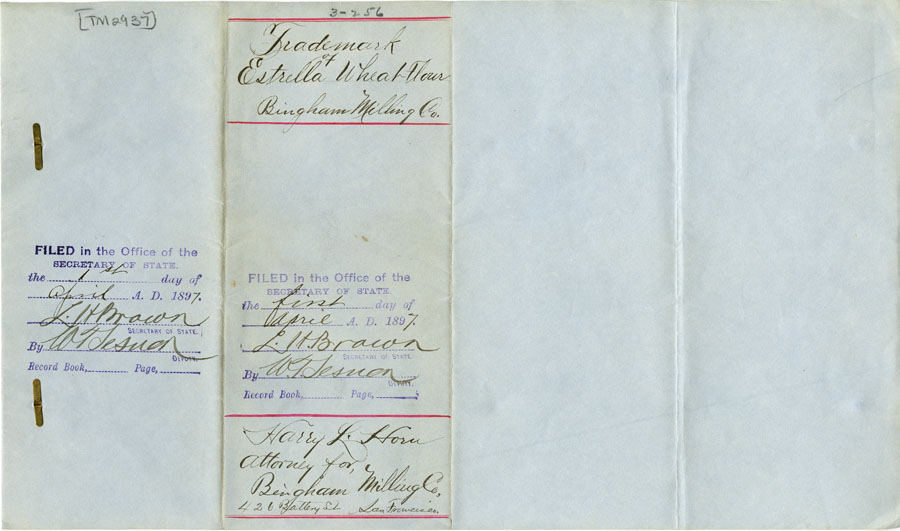 [TM2937]
FILED in the Office of the
SECRETARY OF STATE.
the 1st day of
April A. D. 1897.
L. H. Brown
SECRETARY OF STATE.
By
DEPUTY.
Record Book, Page,
3-256
Trademark
of
Estrella Wheat Flour
Bingham Milling Co.
FILED in the Office of the
SECRETARY OF STATE.
the first day of
April A. D. 1897.
L. H. Brown
SECRETARY OF STATE.
By
DEPUTY.
Record Book, Page,
Harry L. Horn
Attorney for,
Bingham Milling Co,
426 Battery St. San Francisco